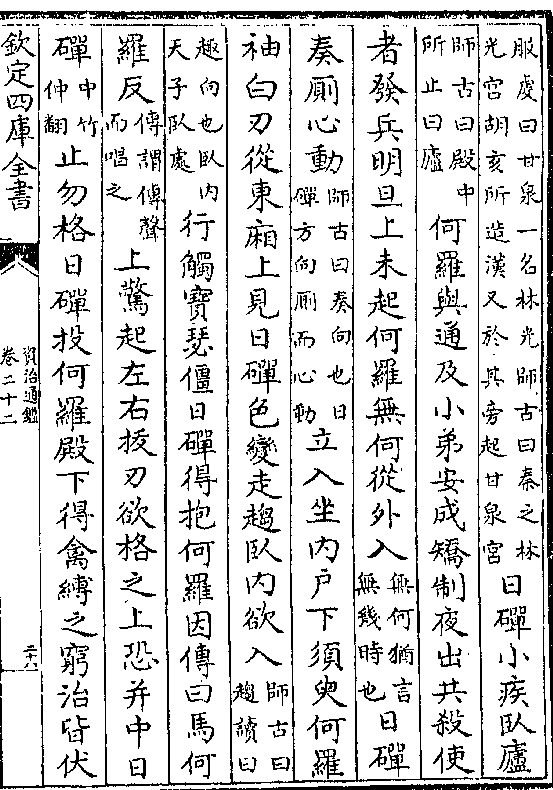 服䖍曰甘泉一名林光師古曰秦之林
光宫胡亥所造漢又於其旁起甘泉宫
日磾小疾卧廬
師古曰殿中
所止曰廬
何羅與通及小弟安成矯制夜出共殺使
者發兵明旦上未起何羅無何從外入
無何猶言
無幾時也
日磾
奏厠心動
師古曰奏向也日
磾方向厠而心動
立入坐内户下須臾何羅
袖白刃從東廂上見日磾色變走趨卧内欲入
師古曰
趨讀曰
趣向也卧内
天子卧處
行觸寳瑟僵日磾得抱何羅因傳曰馬何
羅反
傳謂傳聲
而唱之
上驚起左右拔刃欲格之上恐并中日
磾
中竹
仲翻
止勿格日磾投何羅殿下得禽縛之窮治皆伏
欽定四庫全書
資治通鑑
卷二十二
二十八